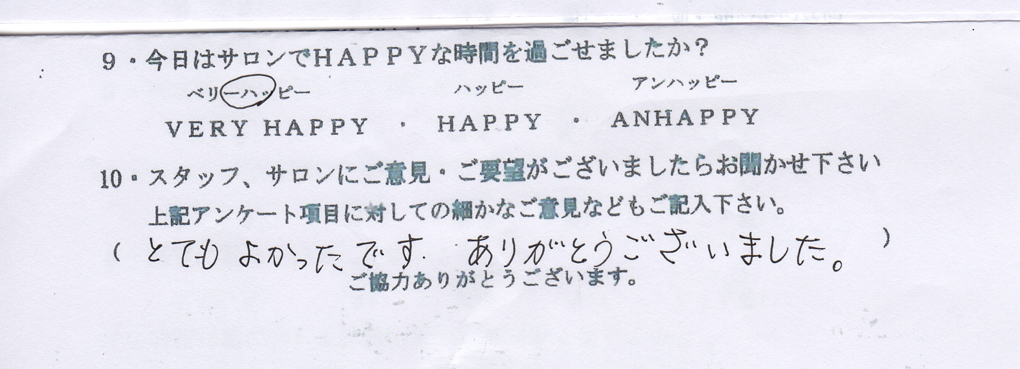 9・今日はサロンでHAPPYな時間を過ごせましたか？
ベリーハッピー　ハッピー　アンハッピー
VERY HAPPY ・ HAPPY ・ ANHAPPY
10・スタッフ、サロンにご意見・ご要望がございましたらお聞かせ下さい
上記アンケート項目に対しての細かなご意見などもご記入下さい。
（とてもよかったです. ありがとうございました。）
ご協力ありがとうございます。